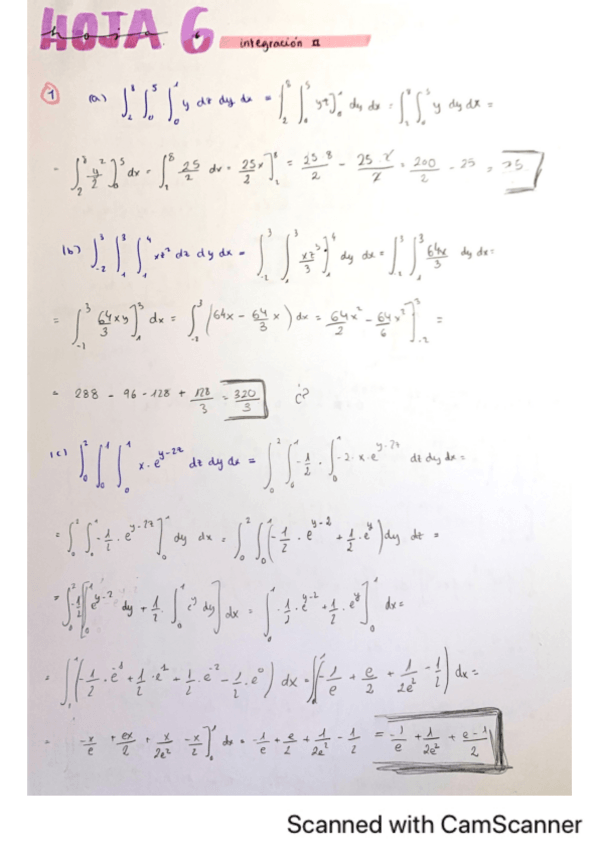 HOJA 6
integración II
① (a) ∫₂⁸ ∫₀⁵ ∫₀¹ y dz dy dx = ∫₂⁸ ∫₀⁵ yz]₀¹ dy dx = ∫₂⁸ ∫₀⁵ y dy dx =
= ∫₂⁸ y²/2]₀⁵ dx = ∫₂⁸ 25/2 dx = 25x/2]₂⁸ = 25·8/2 − 25·2/2 = 200/2 − 25 = 75
(b) ∫₋₂³ ∫₁³ ∫₁⁴ xz² dz dy dx = ∫₋₂³ ∫₁³ xz³/3]₁⁴ dy dx = ∫₋₂³ ∫₁³ 64x/3 dy dx =
= ∫₋₂³ 64xy/3]₁³ dx = ∫₋₂³ (64x − 64/3 x) dx = 64x²/2 − 64x²/6]₋₂³ =
= 288 − 96 − 128 + 128/3 = 320/3 ¿?
(c) ∫₀² ∫₀¹ ∫₀¹ x·e^(y−2z) dz dy dx = ∫₀² ∫₀¹ −1/2 · ∫₀¹ −2·x·e^(y−2z) dz dy dx =
= ∫₀² ∫₀¹ −1/2 · e^(y−2z)]₀¹ dy dx = ∫₀² ∫₀¹ (−1/2 · e^(y−2) + 1/2 · e^y) dy dz =
= ∫₀² −1/2 [∫₀¹ e^(y−2) dy + 1/2 · ∫₀¹ e^y dy] dx = ∫₀¹ −1/2 · e^(y−2) + 1/2 · e^y]₀¹ dx =
= ∫ (−1/2 · e⁻¹ + 1/2 · e¹ + 1/2 · e⁻² − 1/2 · e⁰) dx = ∫ (−1/e + e/2 + 1/2e² − 1/2) dx =
= −x/e + ex/2 + x/2e² − x/2]₀¹ dx = −1/e + e/2 + 1/2e² − 1/2 = −1/e + 1/2e² + e−1/2
Scanned with CamScanner